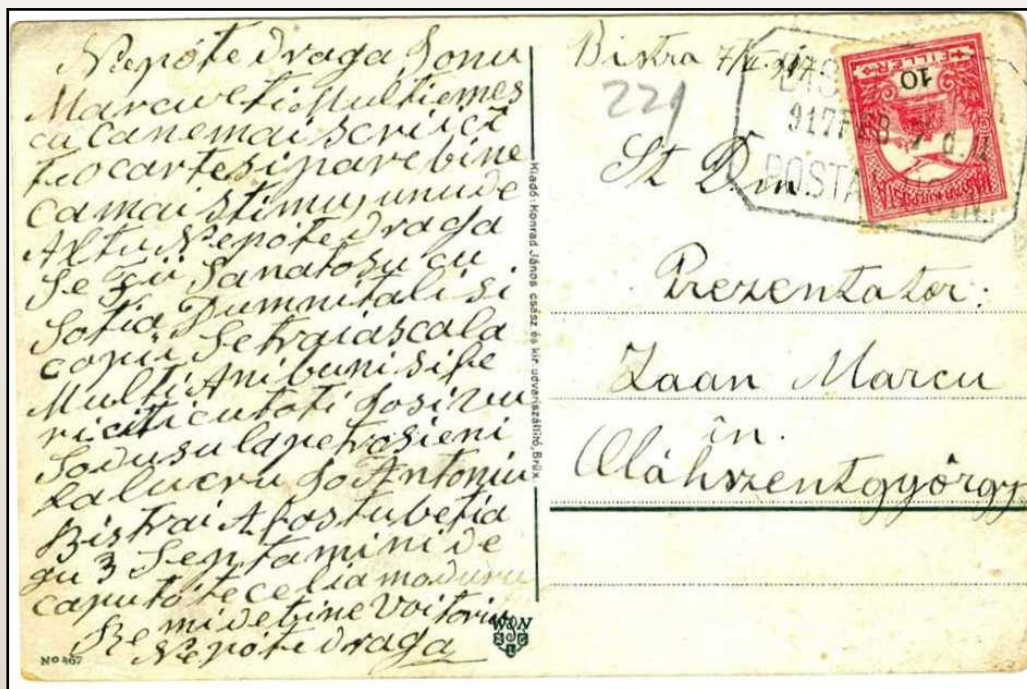 Nepóte draga Jonu
Marcu veti Multiemes
cu ca nemai scriset
t o carte si pare bine
ca mai stimu, unu de
Altu Nepóte draga
Se Fii Sanatosu cu
Sotia Dumnitali si
copii Se traiasca la
Multi Ani buni si fe
riciti cu toti
So dusu la petrosieni
La lucru Jo Antoniu
Bistrai A fostu betia
gu 3 Septamini de
caputó te celia
Re mi de bine Voitoriu
Nepóte draga
No 467
Kiadó: Konrad János csász és kir. udvariszállitó, Brüx.
W N
Bistra
221
917 FEB
POSTA
10
FILLER
MAGYAR KIR. POSTA
St. Dm
Prezentator:
Zaan Marcu
în.
Oláhszentgyörgy